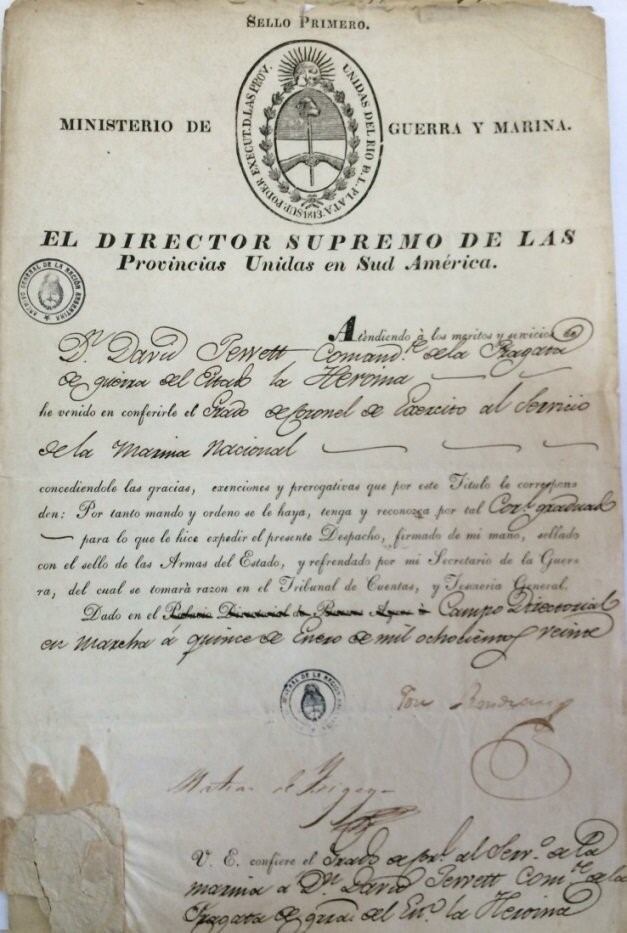 SELLO PRIMERO.
SUP. PODER EXECUT. D. LAS PROV. UNIDAS DEL RIO D. L. PLATA
MINISTERIO DE GUERRA Y MARINA.
EL DIRECTOR SUPREMO DE LAS
Provincias Unidas en Sud América.
ARCHIVO GENERAL DE LA NACION ARGENTINA
Atendiendo à los meritos y servicios de
Dn. David Jewett Comandte. de la Fragata
de guerra del Estado la Heroina
he venido en conferirle el Grado de Coronel de Exercito al Servicio
de la Marina Nacional
concediendole las gracias, exenciones y prerogativas que por este Titulo le correspon
den: Por tanto mando y ordeno se le haya, tenga y reconozca por tal Corl. graduad
para lo que le hice expedir el presente Despacho, firmado de mi mano, sellado
con el sello de las Armas del Estado, y refrendado por mi Secretario de la Guer
ra, del cual se tomará razon en el Tribunal de Cuentas, y Tesoreria General.
Dado en el Palacio Directorial de Buenos Ayres à Campo Directorial
en marcha á quince de Enero de mil ochocientos veinte
Rondeau
Matias de Irigoyen
V. E. confiere el Grado de Corl. al Servo. de la
marina á Dn. David Jewett Comte. de la
Fragata de guerra del Eto. la Heroina